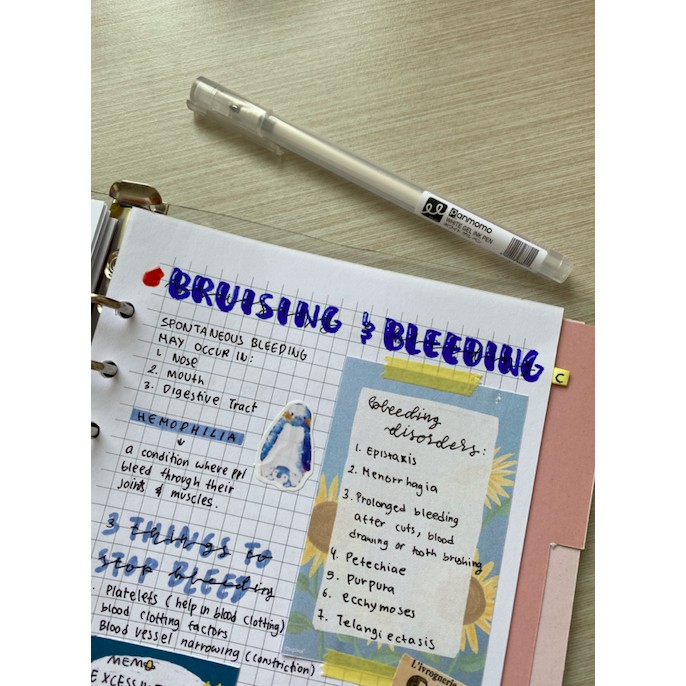 Panmomo
WHITE GEL INK PEN
BRUISING & BLEEDING
C
SPONTANEOUS BLEEDING
MAY OCCUR IN:
1. Nose
2. Mouth
3. Digestive Tract
HEMOPHILIA
a condition where ppl
bleed through their
joints & muscles.
3 THINGS TO
STOP BLEED
bleeding
Platelets (help in blood clotting)
blood clotting factors
Blood vessel narrowing (constriction)
MEMO
EXCESS
bleeding
disorders:
1. Epistaxis
2. Menorrhagia
3. Prolonged bleeding
after cuts, blood
drawing or tooth brushing
4. Petechiae
5. Purpura
6. ecchymoses
7. Telangiectasis
L'ivrognerie